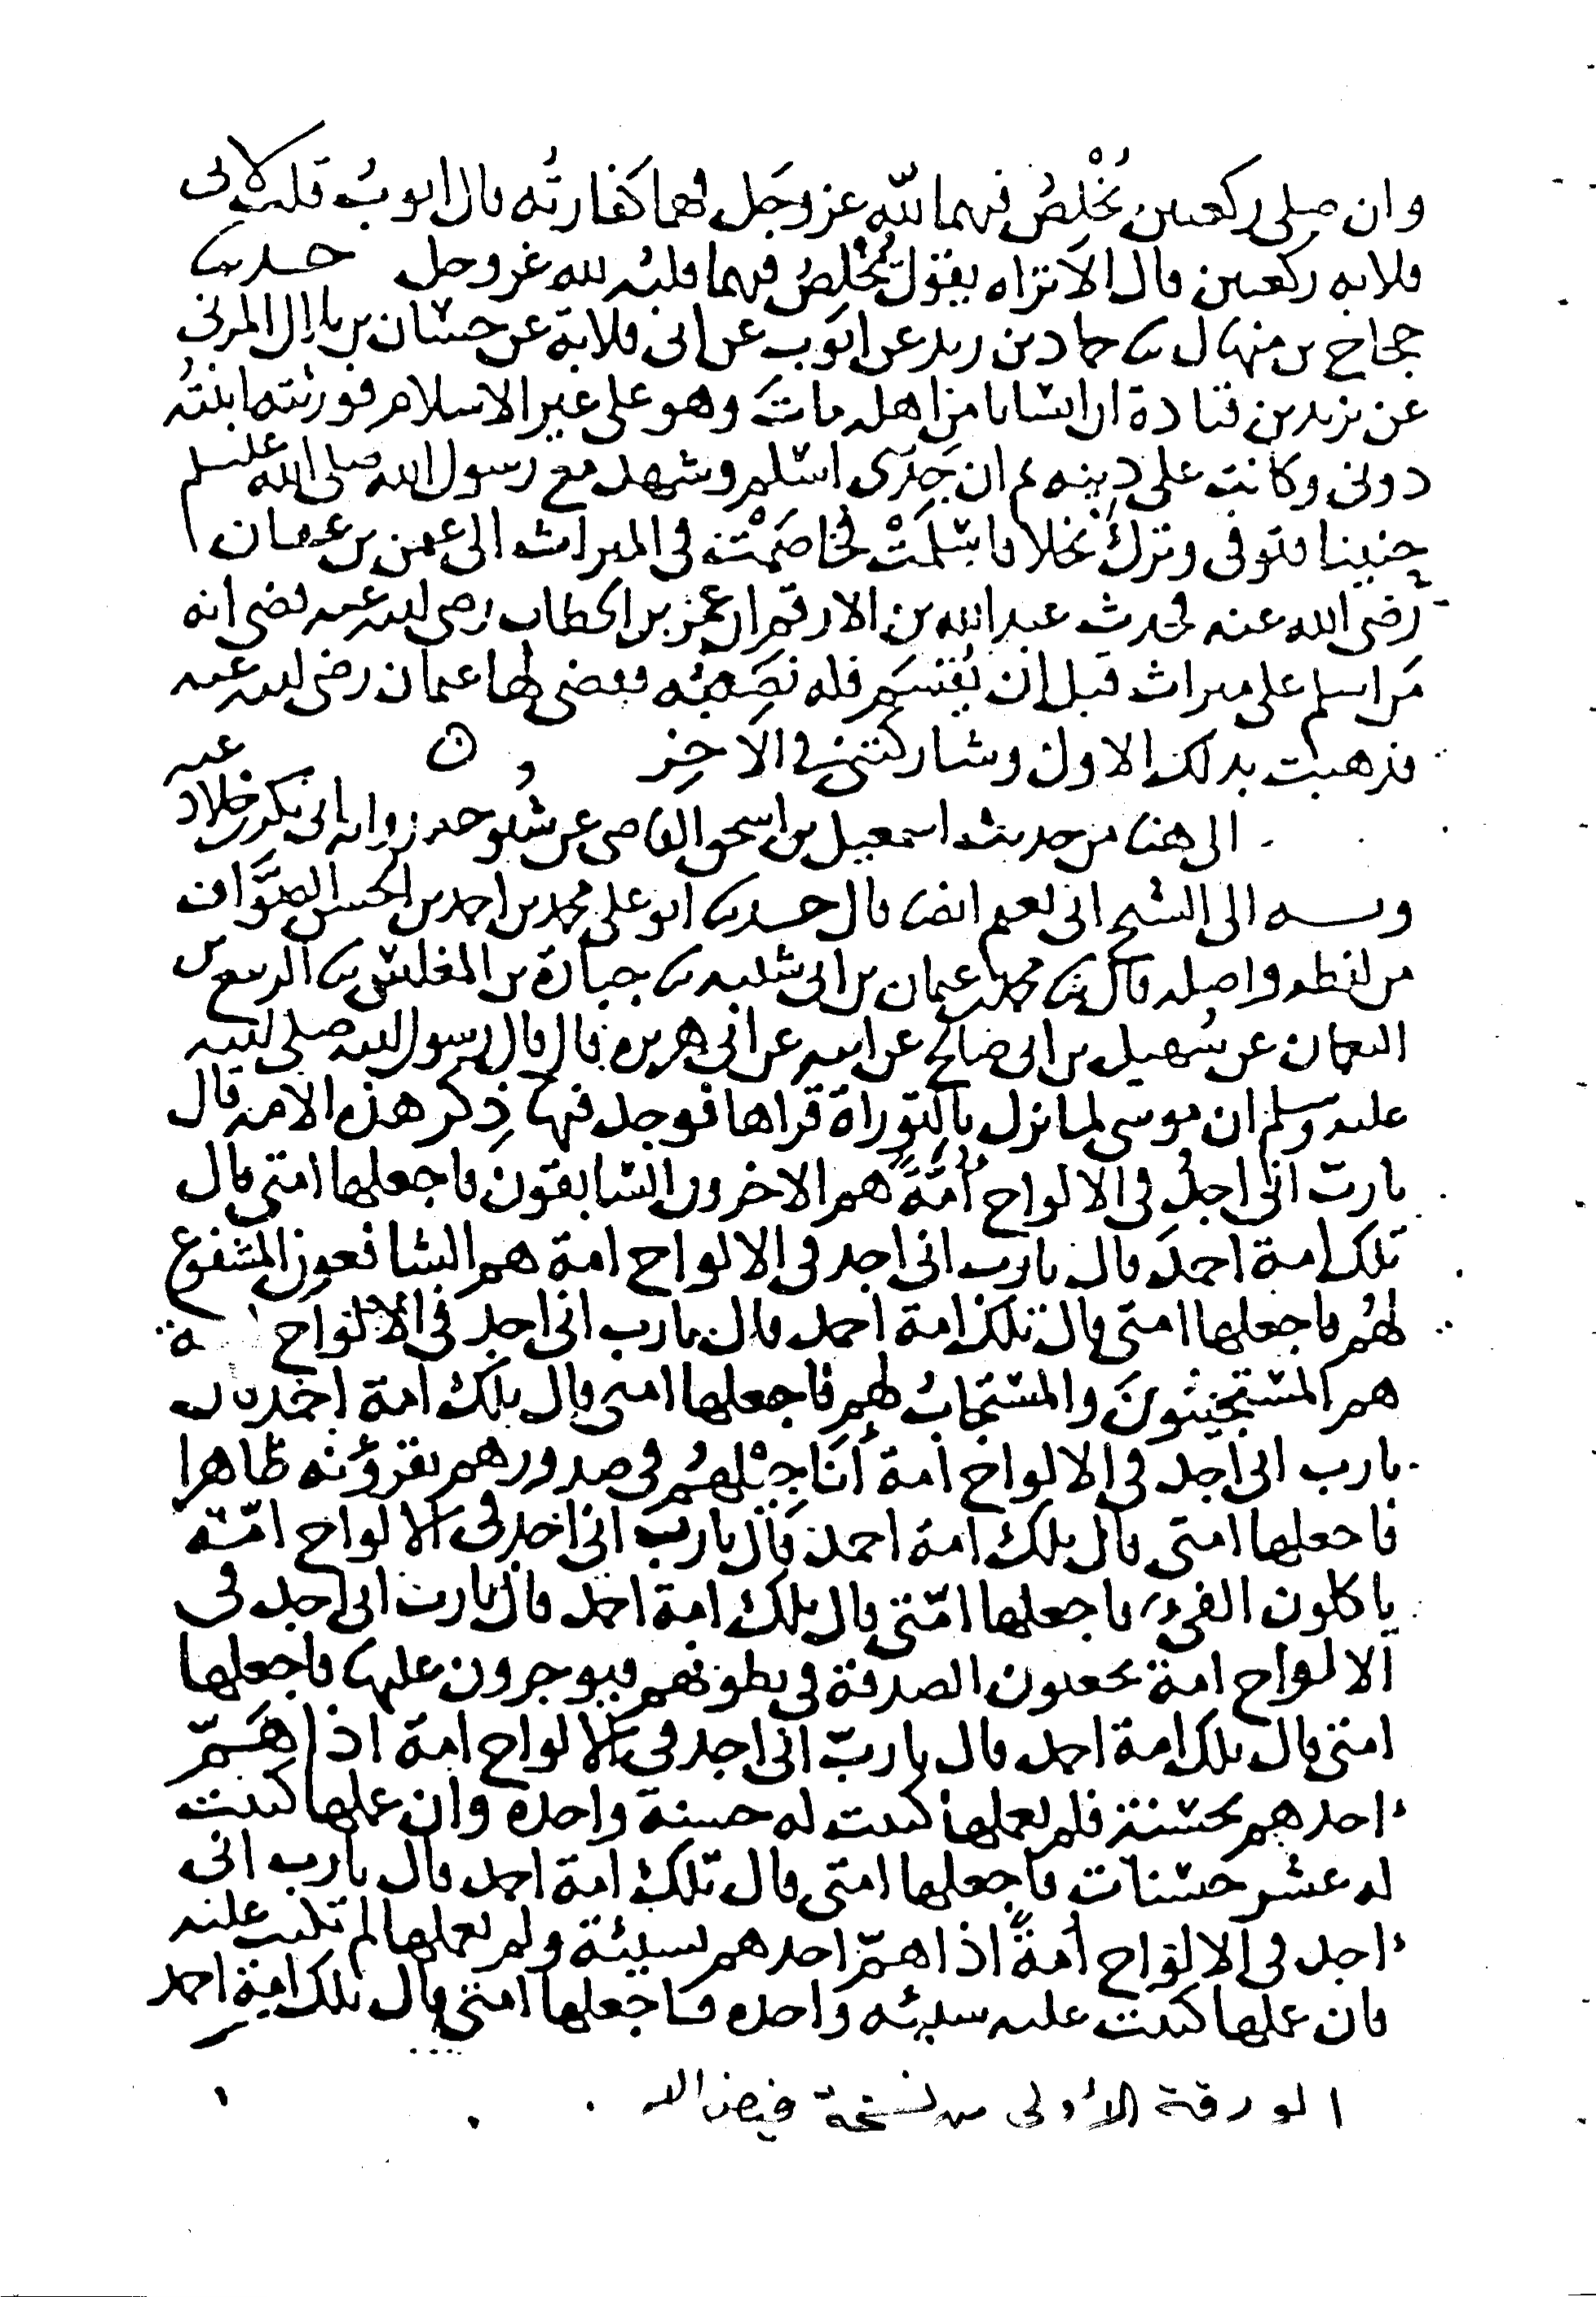 وان صلى ركعتين يُخْلِصُ فيهما لله عز وجل فهما كفارتُه قال ايوبُ قلت لابى
قلابه ركعتين قال الا تراه يقول يُخْلِصُ فيهما قلبُه لله عز وجل حدثنا
حجاج بن منهال نا حماد بن زيد عن ايوب عن ابى قلابة عن حسان بن بلال المزنى
عن يزيد بن قتادة ان انسانا من اهله مات وهو على غير الاسلام فورثته ابنتُه
دونى وكانت على دينه ثم ان جدى اسلم وشهد مع رسول الله صلى الله عليه وسلم
حنينا فتوفى وترك نخلا فاسلمَتْ فخاصمَتْنى فى الميراث الى عثمن بن عفان
رضى الله عنه فحدث عبد الله بن الارقم ان عمر بن الخطاب رضى الله عنه قضى انه
مَن اسلم على ميراث قبل ان يُقسم فله نصيبُه فقضى لها عثمان رضى الله عنه
فذهبت بذلك الاول وشاركتنى فى الآخِر ن
الى هنا من حديث اسمعيل بن اسحق القاضى عن شيوخه رواية ابى بكر بن خلاد عنه
وبه الى الشيخ ابى نعيم ايضا قال حدثنا ابو على محمد بن احمد بن الحسن الصوَّاف
من لفظه واصله قال نا محمد بن عثمان بن ابى شيبه نا جبارة بن المغلس نا الربيع بن
النعمان عن سُهيل بن ابى صالح عن ابيه عن ابى هريره قال قال رسول الله صلى الله
عليه وسلم ان موسى لما نزل بالتوراة قراها فوجد فيها ذِكر هذه الامه قال
يا ربّ انى اجدُ فى الالواح اُمّةً هم الاخرون السابقون فاجعلها امتى قال
تلك امة احمدَ قال يا رب انى اجد فى الالواح امة هم الشافعون المشفوع
لهُم فاجعلها امتى قال تلك امة احمد قال يا رب انى اجد فى الالواح امة
هم المستجيبونَ والمستجابُ لهم فاجعلها امتى قال تلك امة احمد قال
يا رب انى اجد فى الالواح امة أنَاجِيْلهُم فى صدورهم يقرؤنه ظاهرا
فاجعلها امتى قال تلك امة احمد قال يا رب انى اجد فى الالواح امّة
ياكلون الفىء فاجعلها امّتى قال تلك امة احمد قال يا رب انى اجد فى
الالواح امة يجعلون الصدقة فى بطونهم فيوجرون عليها فاجعلها
امتى قال تلك امة احمد قال يا ربّ انى اجد فى الالواح امة اذا هَمّ
احدهم بحسنة فلم يعملها كتبت له حسنة واحده وان عملها كتبت
له عشر حسنات فاجعلها امتى قال تلك امة احمد قال يا رب انى
اجد فى الالواح اُمةً اذا همّ احدهم بسيئة ولم يعملها لم تكتب عليه
فان عملها كتبت عليه سيئه واحده فاجعلها امتى قال تلك امة احمد
الورقة الأولى من نسخة فيض الله